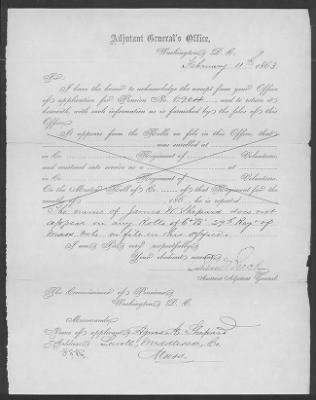 Adjutant General's Office,
Washington, D. C.
February 11th 1863
Sir:
I have the honor to acknowledge the receipt from your Office
of application for Pension No.
and to return it
herewith with such information as is furnished by the files of this
Office.
It appears from the Rolls on file in this Office, that
was enrolled at
in Co. Regiment of Volunteers
and mustered into service as a
in Co. Regiment of Volunteers
On the Muster Roll of Co. of that Regiment for the
months of 186 he is reported
The name of James W. Shepard does not
appear on any Rolls of Co. 29th Reg't of
Mass. Vols. on file in this office.
I am, Sir, very respectfully,
Your obedient servant,
Assistant Adjutant General.
The Commissioner of Pensions,
Washington, D. C.
Memoranda:
Name of applicant, Agnes A. Shepard
Address, Lowell, Middlesex Co.
Mass.